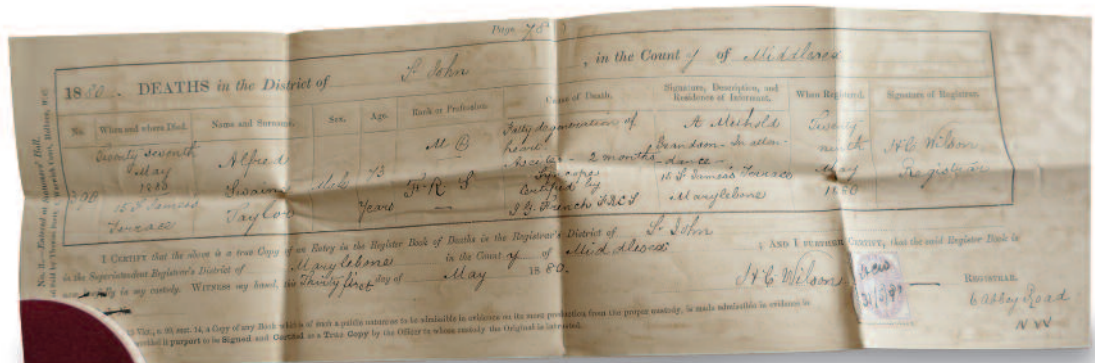 Page 78
1880. DEATHS in the District of St John, in the County of Middlesex
No. When and where Died. Name and Surname. Sex. Age. Rank or Profession. Cause of Death. Signature, Description, and Residence of Informant. When Registered. Signature of Registrar.
390
Twenty seventh
May
1880
15 St James's
Terrace
Alfred
Swaine
Taylor
Male
73
Years
M D
F R S
Fatty degeneration of
heart
Ascites - 2 months
Syncope
Certified by
J G French FRCS
A Methold
Grandson - In atten-
dance -
15 St James's Terrace
Marylebone
Twenty
ninth
May
1880
H C Wilson
Registrar
I CERTIFY that the above is a true Copy of an Entry in the Register Book of Deaths in the Registrar's District of St John
in the Superintendent Registrar's District of Marylebone in the County of Middlesex; AND I FURTHER CERTIFY, that the said Register Book is
now lawfully in my custody. WITNESS my hand, this Thirty first day of May 1880.
H C Wilson REGISTRAR.
6 Abbey Road
N W
Vict., c. 99, sect. 14, a Copy of any Book which is of such a public nature as to be admissible in evidence on its mere production from the proper custody, is made admissible in evidence
provided it purport to be Signed and Certified as a True Copy by the Officer to whose custody the Original is intrusted.
No. 2.—Entered at Stationers' Hall.